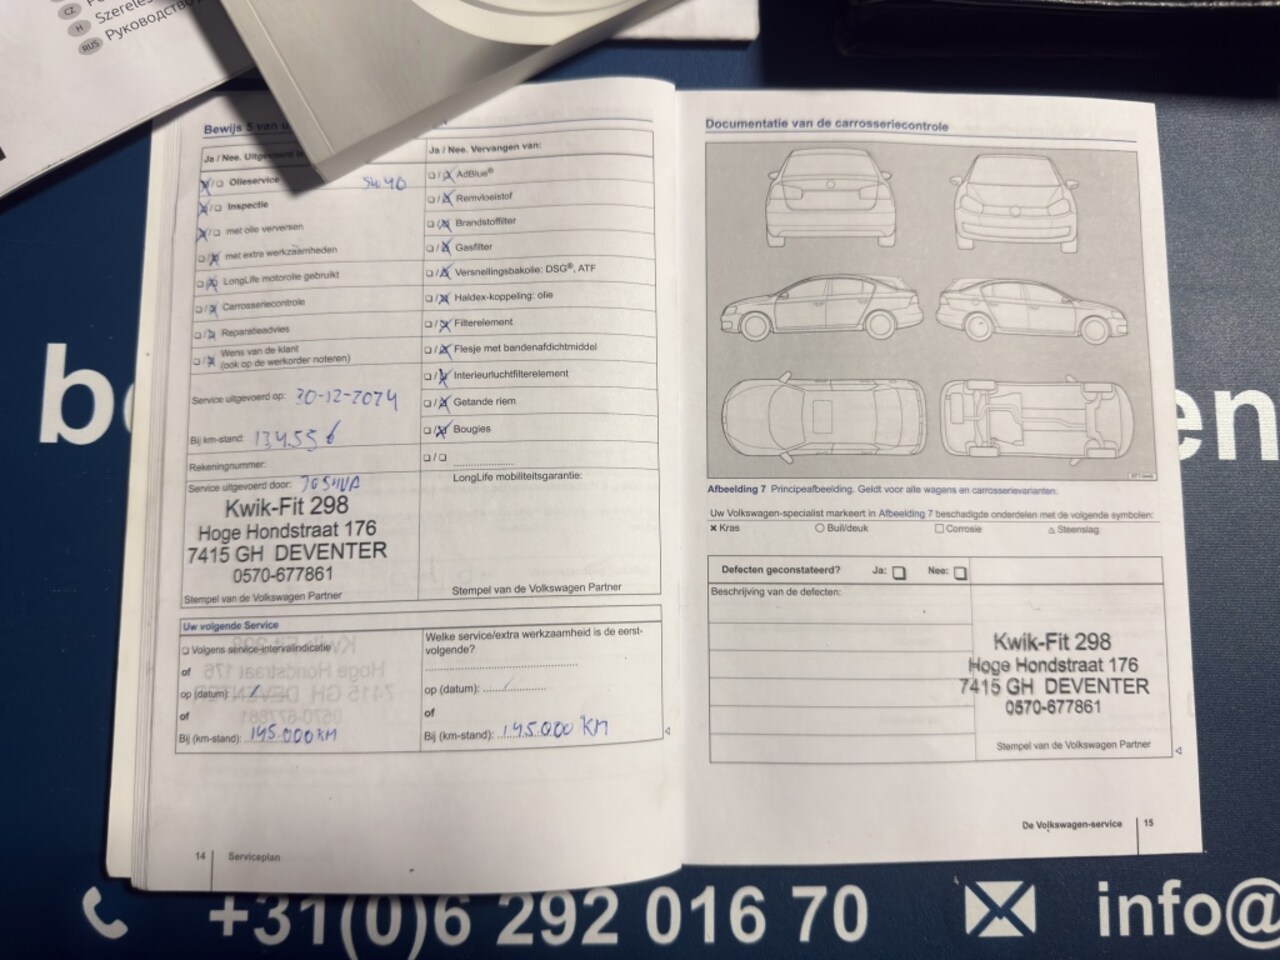 CZ
H
Szereles
RUS
Руководство
Bewijs 5 van u
Ja / Nee. Uitgevoerd
☒/☐ Olieservice 5W40
☒/☐ Inspectie
☒/☐ met olie verversen
☐/☒ met extra werkzaamheden
☐/☒ LongLife motorolie gebruikt
☐/☒ Carrosseriecontrole
☐/☒ Reparatieadvies
☐/☒ Wens van de klant
(ook op de werkorder noteren)
Service uitgevoerd op: 30-12-2024
Bij km-stand: 134.556
Rekeningnummer:
Service uitgevoerd door: JOSHUA
Kwik-Fit 298
Hoge Hondstraat 176
7415 GH DEVENTER
0570-677861
Stempel van de Volkswagen Partner
Ja / Nee. Vervangen van:
☐/☒ AdBlue®
☐/☒ Remvloeistof
☐/☒ Brandstoffilter
☐/☒ Gasfilter
☐/☒ Versnellingsbakolie: DSG®, ATF
☐/☒ Haldex-koppeling: olie
☐/☒ Filterelement
☐/☒ Flesje met bandenafdichtmiddel
☐/☒ Interieurluchtfilterelement
☐/☒ Getande riem
☐/☒ Bougies
☐/☐ ....................
LongLife mobiliteitsgarantie:
Stempel van de Volkswagen Partner
Uw volgende Service
☐ Volgens service-intervalindicatie
of
op (datum): /
of
Bij (km-stand): 145.000 KM
Welke service/extra werkzaamheid is de eerst-
volgende?
op (datum): ..../..........
of
Bij (km-stand): 145.000 KM
14 Serviceplan
Documentatie van de carrosseriecontrole
Afbeelding 7 Principeafbeelding. Geldt voor alle wagens en carrosserievarianten.
Uw Volkswagen-specialist markeert in Afbeelding 7 beschadigde onderdelen met de volgende symbolen:
✖ Kras ○ Buil/deuk □ Corrosie △ Steenslag
Defecten geconstateerd? Ja: ☐ Nee: ☐
Beschrijving van de defecten:
Kwik-Fit 298
Hoge Hondstraat 176
7415 GH DEVENTER
0570-677861
Stempel van de Volkswagen Partner
De Volkswagen-service 15
b
en
+31(0)6 292 016 70 info@